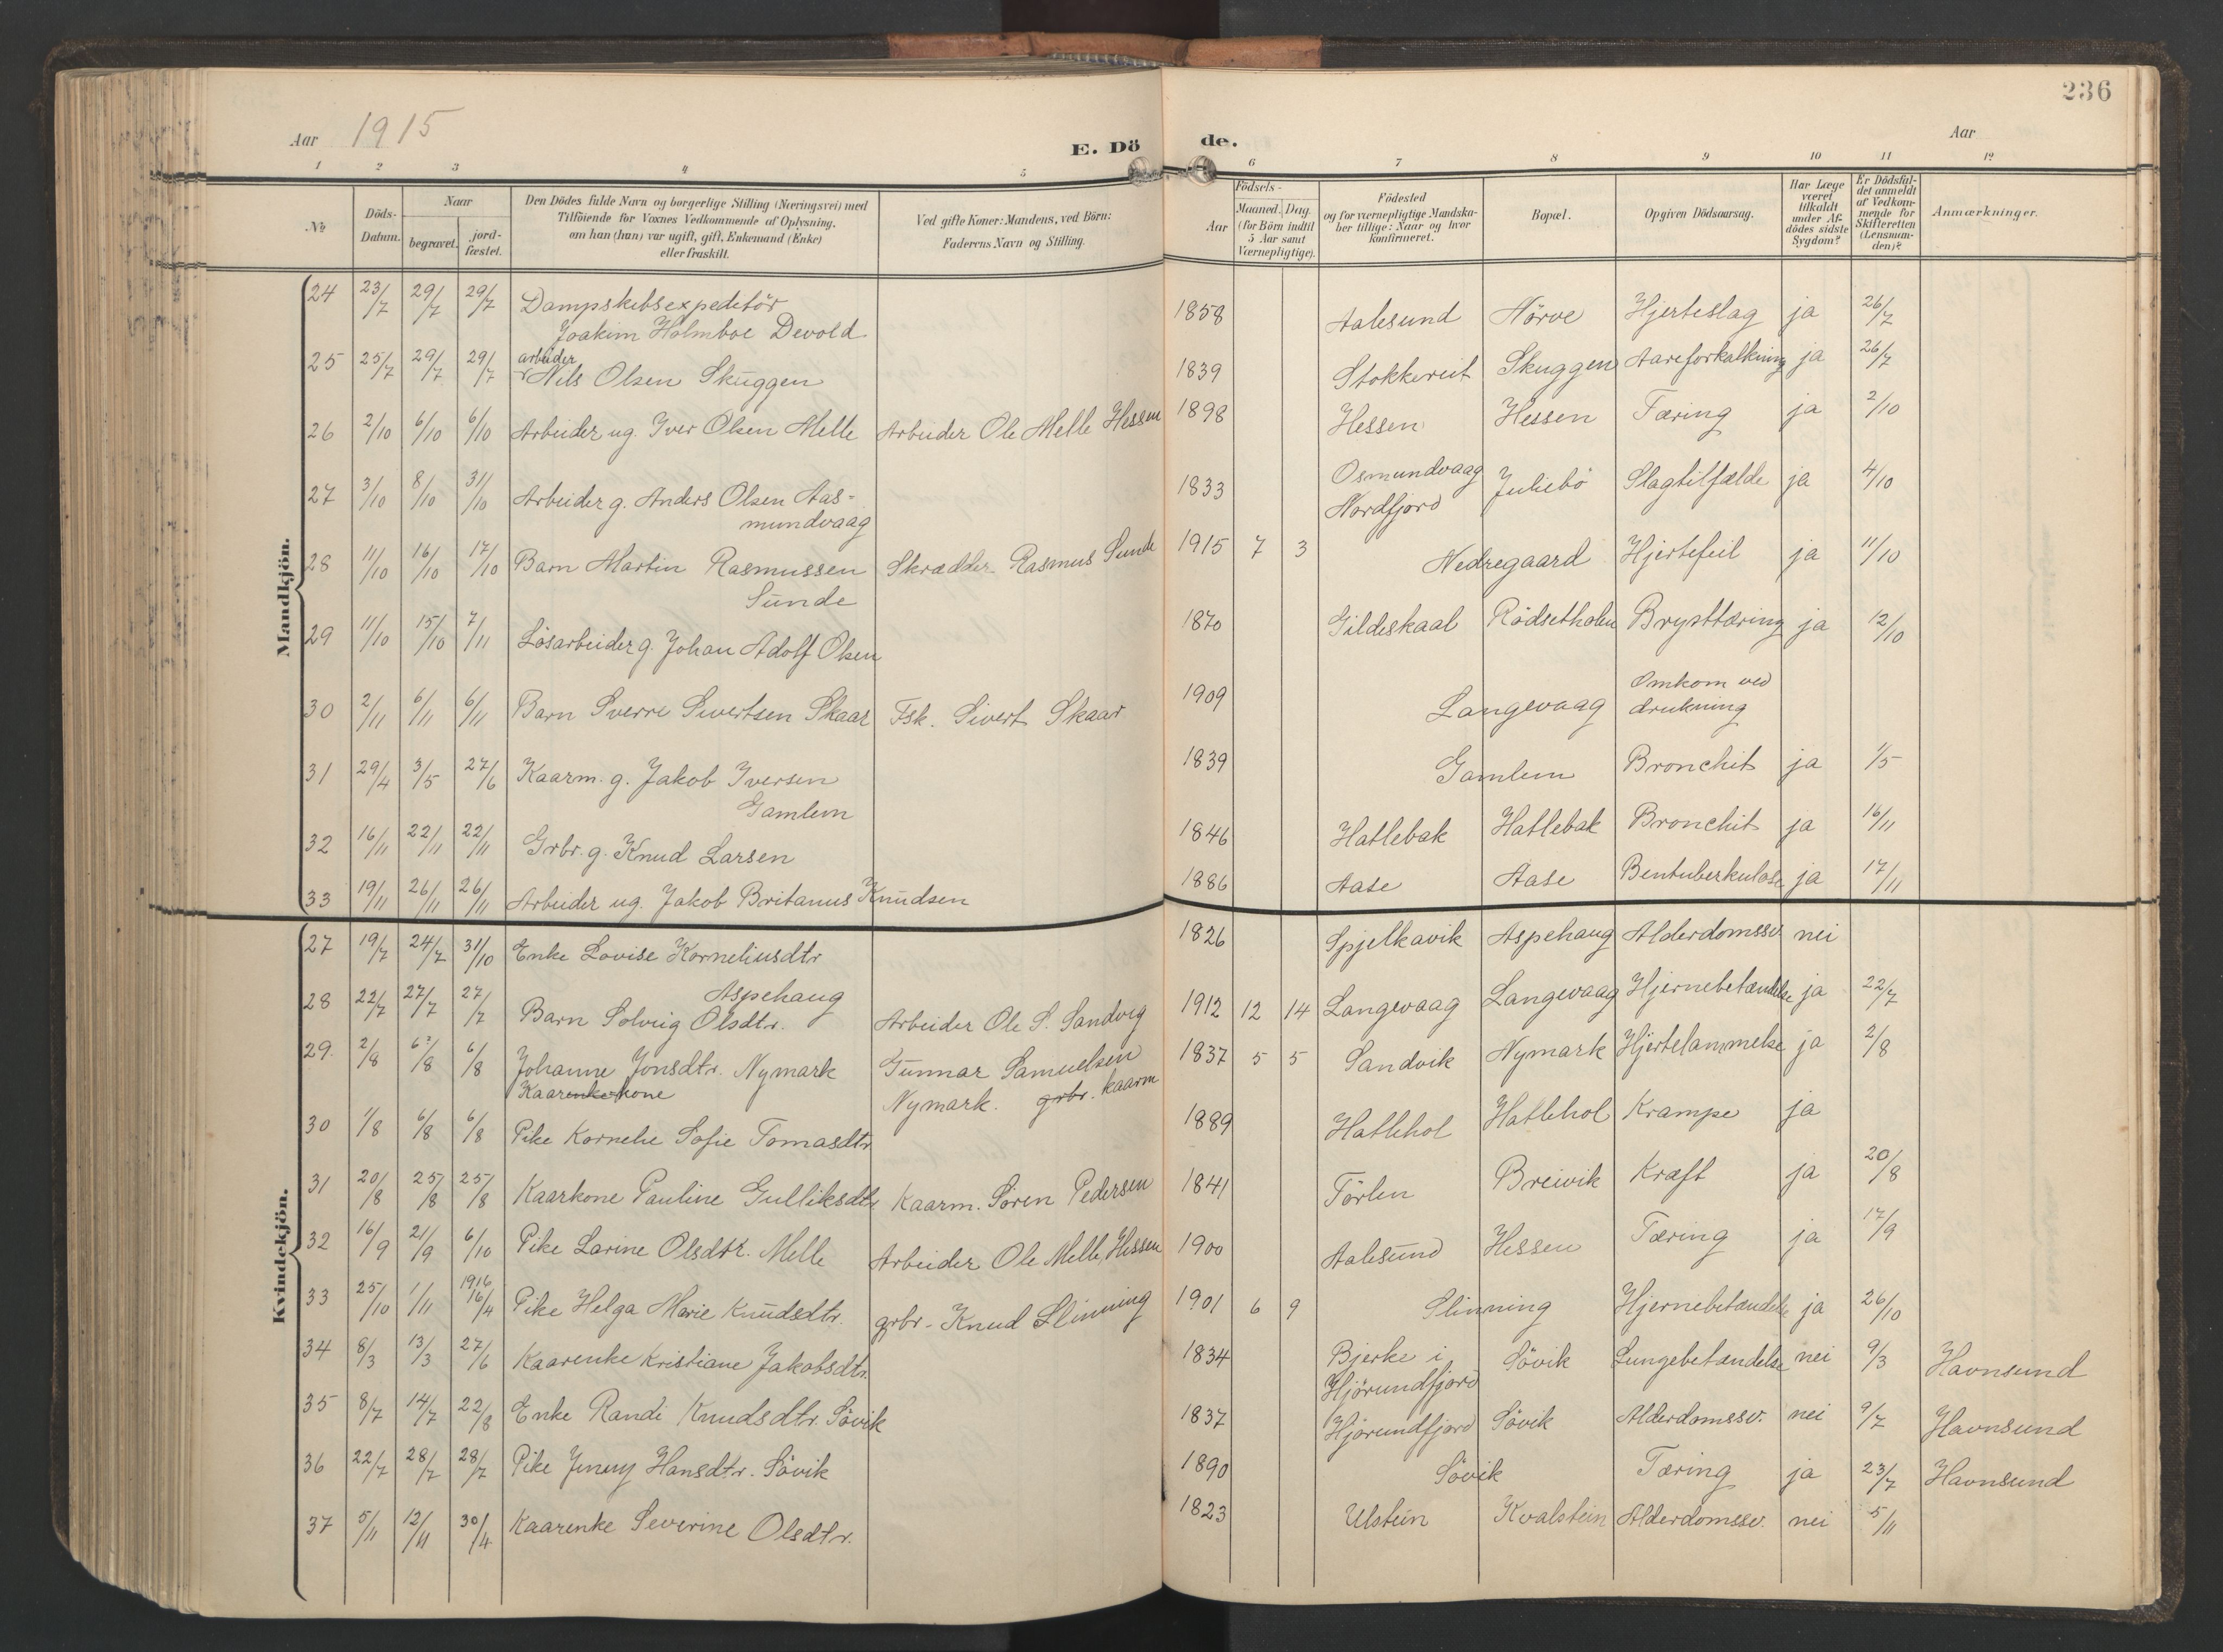 236
Aar 1915
E. Döde.
Aar
1 2 3 4 5 6 7 8 9 10 11 12
№
Döds-Datum.
Naar
begravet. jordfæstet.
Den Dödes fulde Navn og borgerlige Stilling (Næringsvei) med
Tilföiende for Voxnes Vedkommende af Oplysning,
om han (hun) var ugift, gift, Enkemand (Enke)
eller fraskilt.
Ved gifte Koner: Mandens, ved Börn:
Faderens Navn og Stilling.
Födsels-
Aar Maaned. Dag.
(for Börn indtil
5 Aar samt
Værnepligtige).
Födested
og for værnepligtige Mandska-
ber tillige: Naar og hvor
konfirmeret.
Bopæl.
Opgiven Dödsaarsag.
Har Læge
været
tilkaldt
under Af-
dödes sidste
Sygdom?
Er Dödsfal-
det anmeldt
af Vedkom-
mende for
Skifteretten
(Lensman-
den)?
Anmærkninger.
Mandkjön.
24 23/7 29/7 29/7 Dampskibsexpeditör 1858 Aalesund Nörve Hjerteslag ja 26/7
Joakim Holmboe Devold
arbeider
25 25/7 29/7 29/7 Nils Olsen Skuggen 1839 Stokkereit Skuggen Aareforkalkning ja 26/7
26 2/10 6/10 6/10 Arbeider ug. Iver Olsen Melle Arbeider Ole Melle Hessen 1898 Hessen Hessen Tæring ja 2/10
27 3/10 8/10 31/10 Arbeider g. Anders Olsen Aas- 1833 Osmundvaag Juliebö Slagtilfælde ja 4/10
mundvaag Nordfjord
28 11/10 16/10 17/10 Barn Martin Rasmussen Skrædder Rasmus Sunde 1915 7 3 Nedregaard Hjertefeil ja 11/10
Sunde
29 11/10 15/10 7/11 Lösarbeider g. Johan Adolf Olsen 1870 Gildeskaal Rödsetholen Brysttæring ja 12/10
30 2/11 6/11 6/11 Barn Sverre Sivertsen Skaar Fsk. Sivert Skaar 1909 Langevaag Omkom ved
drukning
31 29/4 3/5 27/6 Kaarm. g. Jakob Iversen 1839 Gamlem Bronchit ja 1/5
Gamlem
32 16/11 22/11 22/11 Grbr. g. Knud Larsen 1846 Hatlebak Hatlebak Bronchit ja 16/11
33 19/11 26/11 26/11 Arbeider ug. Jakob Britanus Knudsen 1886 Aase Aase Bentuberkulose ja 17/11
Kvindekjön.
27 19/7 24/7 31/10 Enke Lovise Korneliusdtr 1826 Spjelkavik Aspehaug Alderdomssv. nei
Aspehaug
28 22/7 27/7 27/7 Barn Solveig Olsdtr. Arbeider Ole S. Sandvig 1912 12 14 Langevaag Langevaag Hjernebetændelse ja 22/7
29. 2/8 6/8 6/8 Johanne Jonsdtr. Nymark Gunnar Samuelsen 1837 5 5 Sandvik Nymark Hjertelammelse ja 2/8
Kaarenkekone Nymark. grbr. kaarm
30 1/8 6/8 6/8 Pike Kornelie Sofie Tomasdtr 1889 Hatlehol Hatlehol Krampe ja
31 20/8 25/8 25/8 Kaarkone Pauline Gulliksdtr. Kaarm. Sören Pedersen 1841 Törlen Breivik Kræft ja 20/8
32 16/9 21/9 6/10 Pike Larine Olsdtr. Melle Arbeider Ole Melle, Hessen 1900 Aalesund Hessen Tæring ja 17/9
33 25/10 1/11 1916 16/4 Pike Helga Marie Knudsdtr. grbr. Knud Slinning 1901 6 9 Slinning Hjernebetændelse ja 26/10
34 8/3 13/3 27/6 Kaarenke Kristiane Jakobsdtr. 1834 Bjerke i Sövik Lungebetændelse nei 9/3 Havnsund
Hjörundfjord
35 8/7 14/7 22/8 Enke Randi Knudsdtr. Sövik 1837 Hjörundfjord Sövik Alderdomssv. nei 9/7 Havnsund
36 22/7 28/7 28/7 Pike Jenny Hansdtr. Sövik 1890 Sövik Tæring ja 23/7 Havnsund
37 5/11 12/11 30/4 Kaarenke Severine Olsdtr. 1823 Ulstein Kvalstein Alderdomssv. nei 5/11